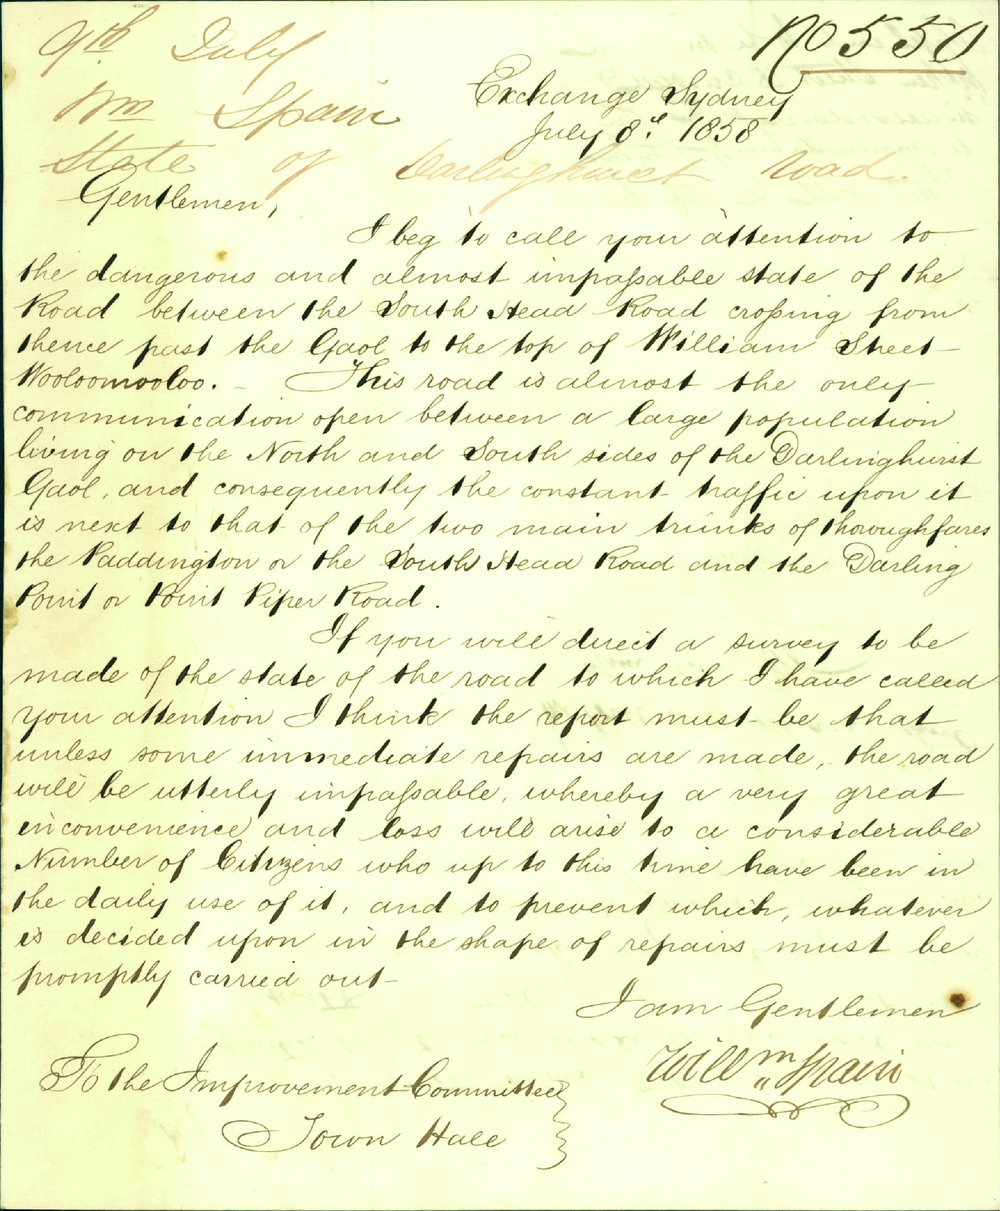 No 550
9th July
Wm Spain
State of Darlinghurst road.
Exchange Sydney
July 8th 1858
Gentlemen,
I beg to call your attention to
the dangerous and almost impassable state of the
Road between the South Head Road crossing from
thence past the Gaol to the top of William Street
Wooloomooloo. - This road is almost the only
communication open between a large population
living on the North and South sides of the Darlinghurst
Gaol, and consequently the constant traffic upon it
is next to that of the two main trunks of thoroughfares
the Paddington or the South Head Road and the Darling
Point or Point Piper Road.
If you will direct a survey to be
made of the state of the road to which I have called
your attention I think the report must be that
unless some immediate repairs are made, the road
will be utterly impassable, whereby a very great
inconvenience and loss will arise to a considerable
Number of Citizens who up to this time have been in
the daily use of it, and to prevent which, whatever
is decided upon in the shape of repairs must be
promptly carried out-
I am Gentlemen
Willm Spain
To the Improvement Committee
Town Hall